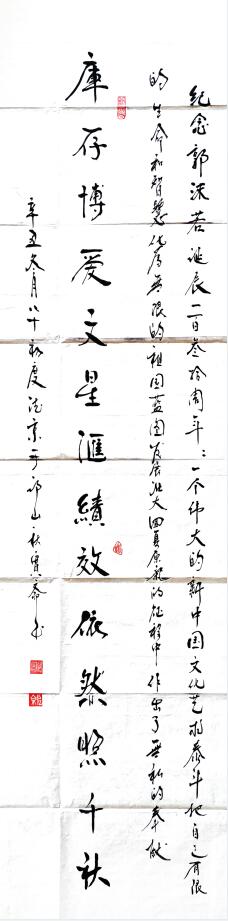 纪念郭沫若诞辰一百叁拾周年：一个伟大的新中国文化艺术泰斗把自己有限
的生命和智慧化为无限的祖国蓝图发展壮大四复原貌的征程中作出了无私的奉献
庫存博爱文星滙績效依然照千秋
辛丑冬月八十初度